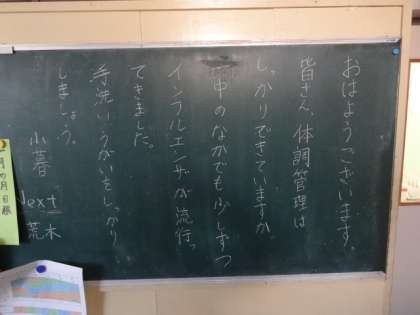 おはようございます。
皆さん、体調管理は
しっかりできていますか。
中のなかでも少しずつ
インフルエンザが流行っ
てきました。
手洗い、うがいをしっかり
しましょう。
小暮
Next
荒木
月の月目標